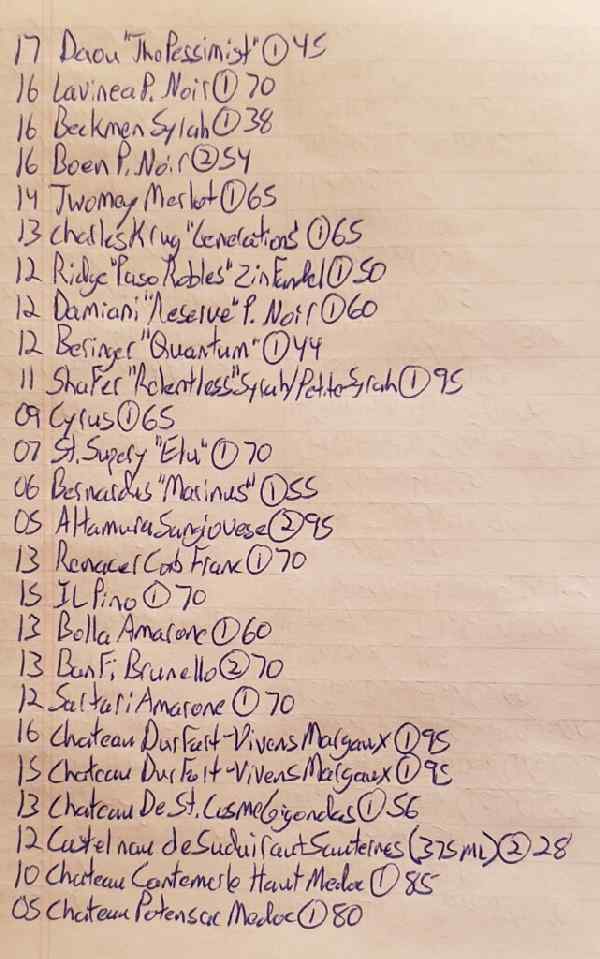 17 Daou "The Pessimist" ① 45
16 Lavinea P. Noir ① 70
16 Beckmen Syrah ① 38
16 Boen P. Noir ② 54
14 Twomey Merlot ① 65
13 Charles Krug "Generations" ① 65
12 Ridge "Paso Robles" Zinfandel ① 50
12 Damiani "Reserve" P. Noir ① 60
12 Beringer "Quantum" ① 44
11 Shafer "Relentless" Syrah/Petite Syrah ① 95
09 Cyrus ① 65
07 St. Supery "Elu" ① 70
06 Bernardus "Marinus" ① 55
05 Altamura Sangiovese ② 95
13 Renacer Cab Franc ① 70
15 IL Pino ① 70
13 Bolla Amarone ① 60
13 Banfi Brunello ② 70
12 Sartari Amarone ① 70
16 Chateau Durfort-Vivens Margaux ① 95
15 Chateau Durfort-Vivens Margaux ① 95
13 Chateau De St. Cosme Gigondas ① 56
12 Castelnau de Suduiraut Sauternes (375ML) ② 28
10 Chateau Cantemerle Haut Medoc ① 85
05 Chateau Potensac Medoc ① 80